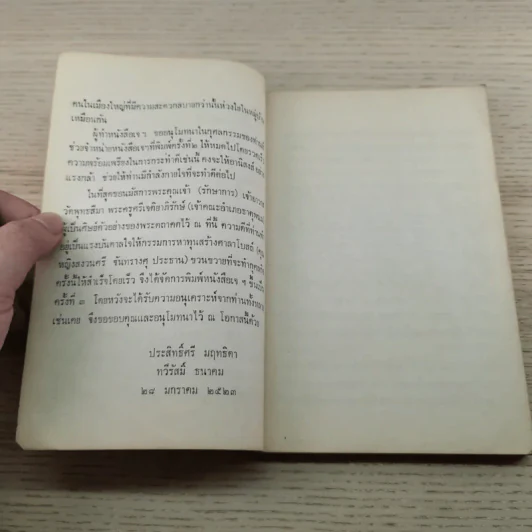 คนในเมืองใหญ่ที่มีความสะดวกสบายกว่านั้นห่วงใยในหมู่
เหมือนกัน
ผู้ทำหนังสือเจ ฯ ขออนุโมทนาในกุศลกรรมของท่าน
ช่วยจำหน่ายหนังสือเจฯที่พิมพ์ครั้งที่๒ ให้หมดไปโดยรวดเร็ว
ความพร้อมเพรียงในการกระทำดีเช่นนี้ คงจะให้อานิสงส์
แรงกล้า ช่วยให้ท่านมีกำลังกายใจที่จะทำดีต่อไป
ในที่สุดขอนมัสการพระคุณเจ้า (รักษาการ) เจ้าอาวาส
วัดพุทธสีมา พระครูศรีเจติยาภิรักษ์ (เจ้าคณะอำเภอธาตุพนม)
ผู้เป็นศิษย์ตัวอย่างของพระตถาคตไว้ ณ ที่นี้ ความดีที่ท่าน
อยู่เป็นแรงบันดาลใจให้กรรมการหาทุนสร้างศาลาโบสถ์ (คุณ
หญิงสงวนศรี จันทรางศุ ประธาน) ขวนขวายที่จะทำกุศล
ครั้งนี้ให้สำเร็จโดยเร็ว จึงได้จัดการพิมพ์หนังสือเจ ฯ ขึ้นเป็น
ครั้งที่ ๓ โดยหวังจะได้รับความอนุเคราะห์จากท่านทั้งหลาย
เช่นเคย จึงขอขอบคุณและอนุโมทนาไว้ ณ โอกาสนี้ด้วย
ประสิทธิ์ศรี มฤทธิคา
ทวีรัสมิ์ ธนาคม
๒๘ มกราคม ๒๕๒๓